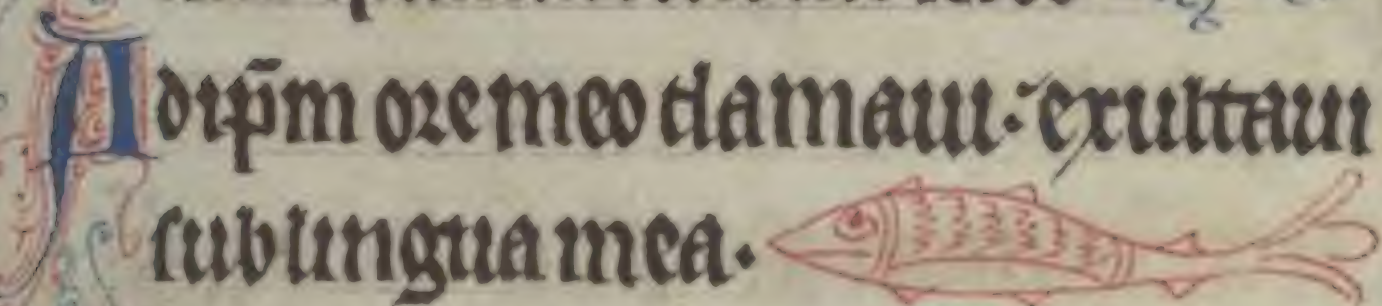 Ad ip̄m ore meo clamaui · exultaui
sub lingua mea ·